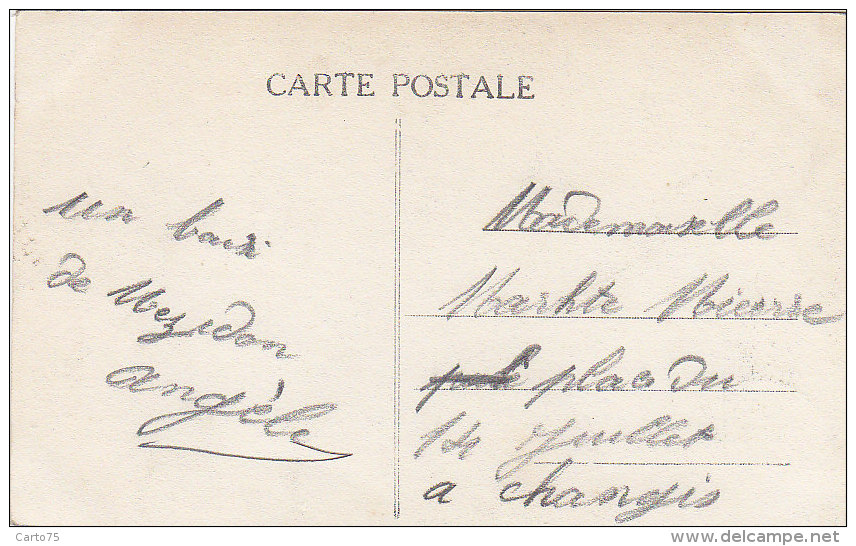 CARTE POSTALE
un baisé
de Mezidon
Angèle
Mademoiselle
Marhte Mierse
place du
14 Juillet
a changis
Carto75
www.delcampe.net